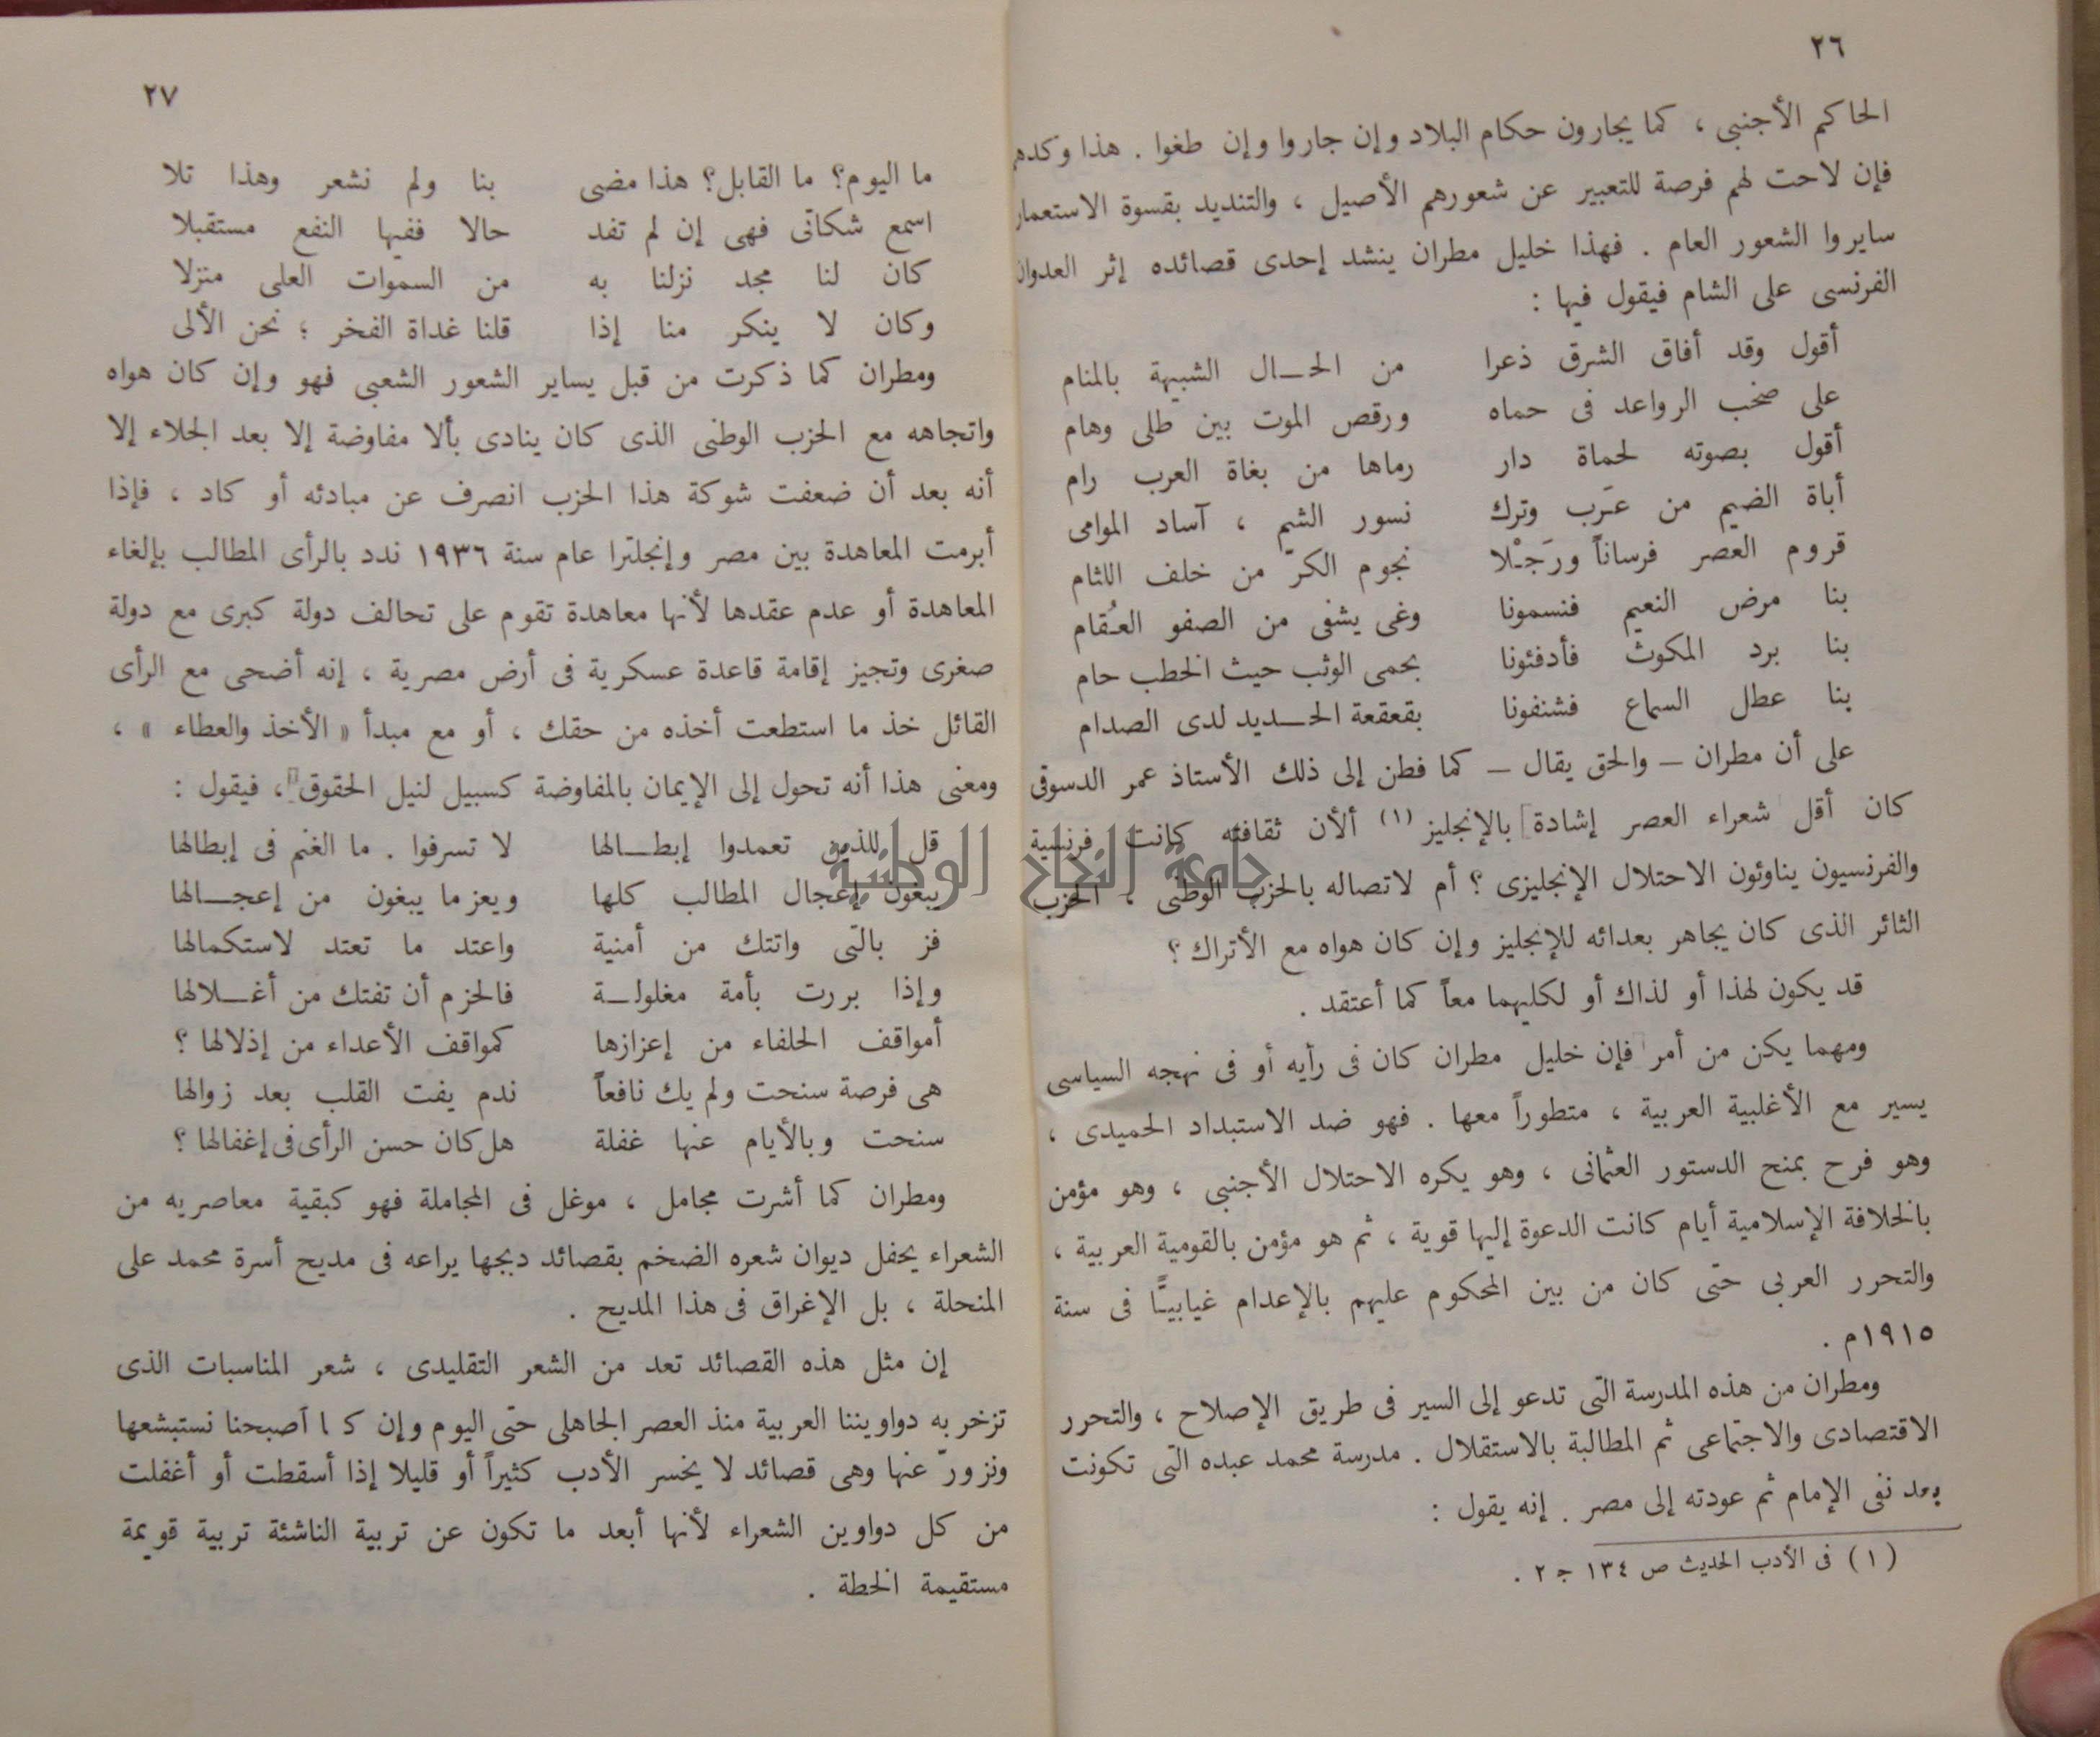 ٢٦
الحاكم الأجنبى ، كما يجارون حكام البلاد وإن جاروا وإن طغوا . هذا وكدهم
فإن لاحت لهم فرصة للتعبير عن شعورهم الأصيل ، والتنديد بقسوة الاستعمار
سايروا الشعور العام . فهذا خليل مطران ينشد إحدى قصائده إثر العدوان
الفرنسى على الشام فيقول فيها :
أقول وقد أفاق الشرق ذعرا من الحـال الشبيهة بالمنام
على صخب الرواعد فى حماه ورقص الموت بين طلى وهام
أقول بصوته لحماة دار رماها من بغاة الغرب رام
أباة الضيم من عَرب وترك نسور الشم ، آساد الموامى
قروم العصر فرساناً ورَجْلا نجوم الكرّ من خلف اللثام
بنا مرض النعيم فنسمونا وغى يشفى من الصفو العُقام
بنا برد المكوث فأدفئونا بحمى الوثب حيث الخطب حام
بنا عطل السماع فشنفونا بقعقعة الحـديد لدى الصدام
على أن مطران – والحق يقال – كما فطن إلى ذلك الأستاذ عمر الدسوقى
كان أقل شعراء العصر إشادة بالإنجليز (١) ألأن ثقافته كانت فرنسية
والفرنسيون يناوئون الاحتلال الإنجليزى ؟ أم لاتصاله بالحزب الوطنى ، الحزب
الثائر الذى كان يجاهر بعدائه للإنجليز وإن كان هواه مع الأتراك ؟
قد يكون لهذا أو لذاك أو لكليهما معاً كما أعتقد .
ومهما يكن من أمر فإن خليل مطران كان فى رأيه أو فى نهجه السياسى
يسير مع الأغلبية العربية ، متطوراً معها . فهو ضد الاستبداد الحميدى ،
وهو فرح بمنح الدستور العثمانى ، وهو يكره الاحتلال الأجنبى ، وهو مؤمن
بالخلافة الإسلامية أيام كانت الدعوة إليها قوية ، ثم هو مؤمن بالقومية العربية ،
والتحرر العربى حتى كان من بين المحكوم عليهم بالإعدام غيابيًّا فى سنة
١٩١٥م .
ومطران من هذه المدرسة التى تدعو إلى السير فى طريق الإصلاح ، والتحرر
الاقتصادى والاجتماعى ثم المطالبة بالاستقلال . مدرسة محمد عبده التى تكونت
بعد نفى الإمام ثم عودته إلى مصر . إنه يقول :
(١) فى الأدب الحديث ص ١٣٤ ج ٢ .
٢٧
ما اليوم؟ ما القابل؟ هذا مضى بنا ولم نشعر وهذا تلا
اسمع شكاتى فهى إن لم تفد حالا ففيها النفع مستقبلا
كان لنا مجد نزلنا به من السموات العلى منزلا
وكان لا ينكر منا إذا قلنا غداة الفخر ؛ نحن الألى
ومطران كما ذكرت من قبل يساير الشعور الشعبى فهو وإن كان هواه
واتجاهه مع الحزب الوطنى الذى كان ينادى بألا مفاوضة إلا بعد الجلاء إلا
أنه بعد أن ضعفت شوكة هذا الحزب انصرف عن مبادئه أو كاد ، فإذا
أبرمت المعاهدة بين مصر وإنجلترا عام سنة ١٩٣٦ ندد بالرأى المطالب بإلغاء
المعاهدة أو عدم عقدها لأنها معاهدة تقوم على تحالف دولة كبرى مع دولة
صغرى وتجيز إقامة قاعدة عسكرية فى أرض مصرية ، إنه أضحى مع الرأى
القائل خذ ما استطعت أخذه من حقك ، أو مع مبدأ « الأخذ والعطاء » ،
ومعنى هذا أنه تحول إلى الإيمان بالمفاوضة كسبيل لنيل الحقوق ، فيقول :
قل للذين تعمدوا إبطـالها لا تسرفوا . ما الغنم فى إبطالها
يبغون إعجال المطالب كلها ويعز ما يبغون من إعجـالها
فز بالتى واتتك من أمنية واعتد ما تعتد لاستكمالها
وإذا بررت بأمة مغلولـة فالحزم أن تفتك من أغـلالها
أمواقف الحلفاء من إعزازها كمواقف الأعداء من إذلالها ؟
هى فرصة سنحت ولم يك نافعاً ندم يفت القلب بعد زوالها
سنحت وبالأيام عنها غفلة هل كان حسن الرأى فى إغفالها ؟
ومطران كما أشرت مجامل ، موغل فى المجاملة فهو كبقية معاصريه من
الشعراء يحفل ديوان شعره الضخم بقصائد دبجها يراعه فى مديح أسرة محمد على
المنحلة ، بل الإغراق فى هذا المديح .
إن مثل هذه القصائد تعد من الشعر التقليدى ، شعر المناسبات الذى
تزخر به دواويننا العربية منذ العصر الجاهلى حتى اليوم وإن كنا أصبحنا نستبشعها
ونزورّ عنها وهى قصائد لا يخسر الأدب كثيراً أو قليلا إذا أسقطت أو أغفلت
من كل دواوين الشعراء لأنها أبعد ما تكون عن تربية الناشئة تربية قويمة
مستقيمة الخطة .
جامعة النجاح الوطنية